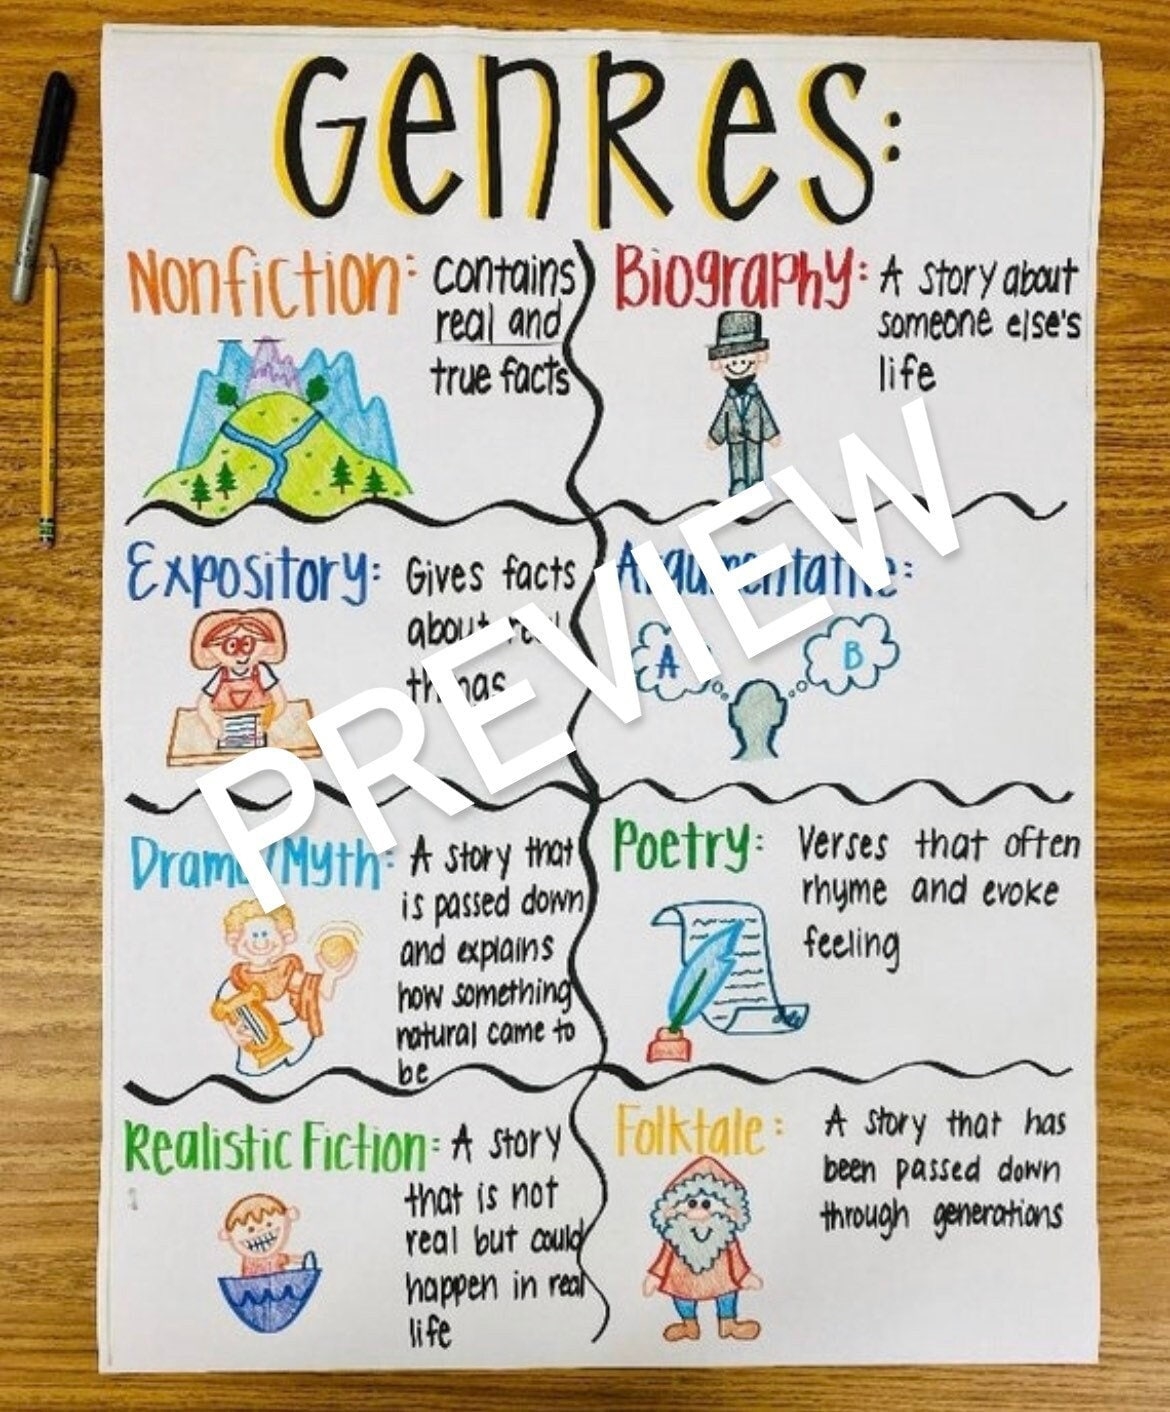 GenRes:
Nonfiction: contains
real and
true facts
Biography: A story about
someone else's
life
Expository: Gives facts
about real
things
Argumentative:
A
B
Drama/Myth: A story that
is passed down
and explains
how something
natural came to
be
Poetry: Verses that often
rhyme and evoke
feeling
Realistic Fiction: A story
that is not
real but could
happen in real
life
Folktale: A story that has
been passed down
through generations
PREVIEW